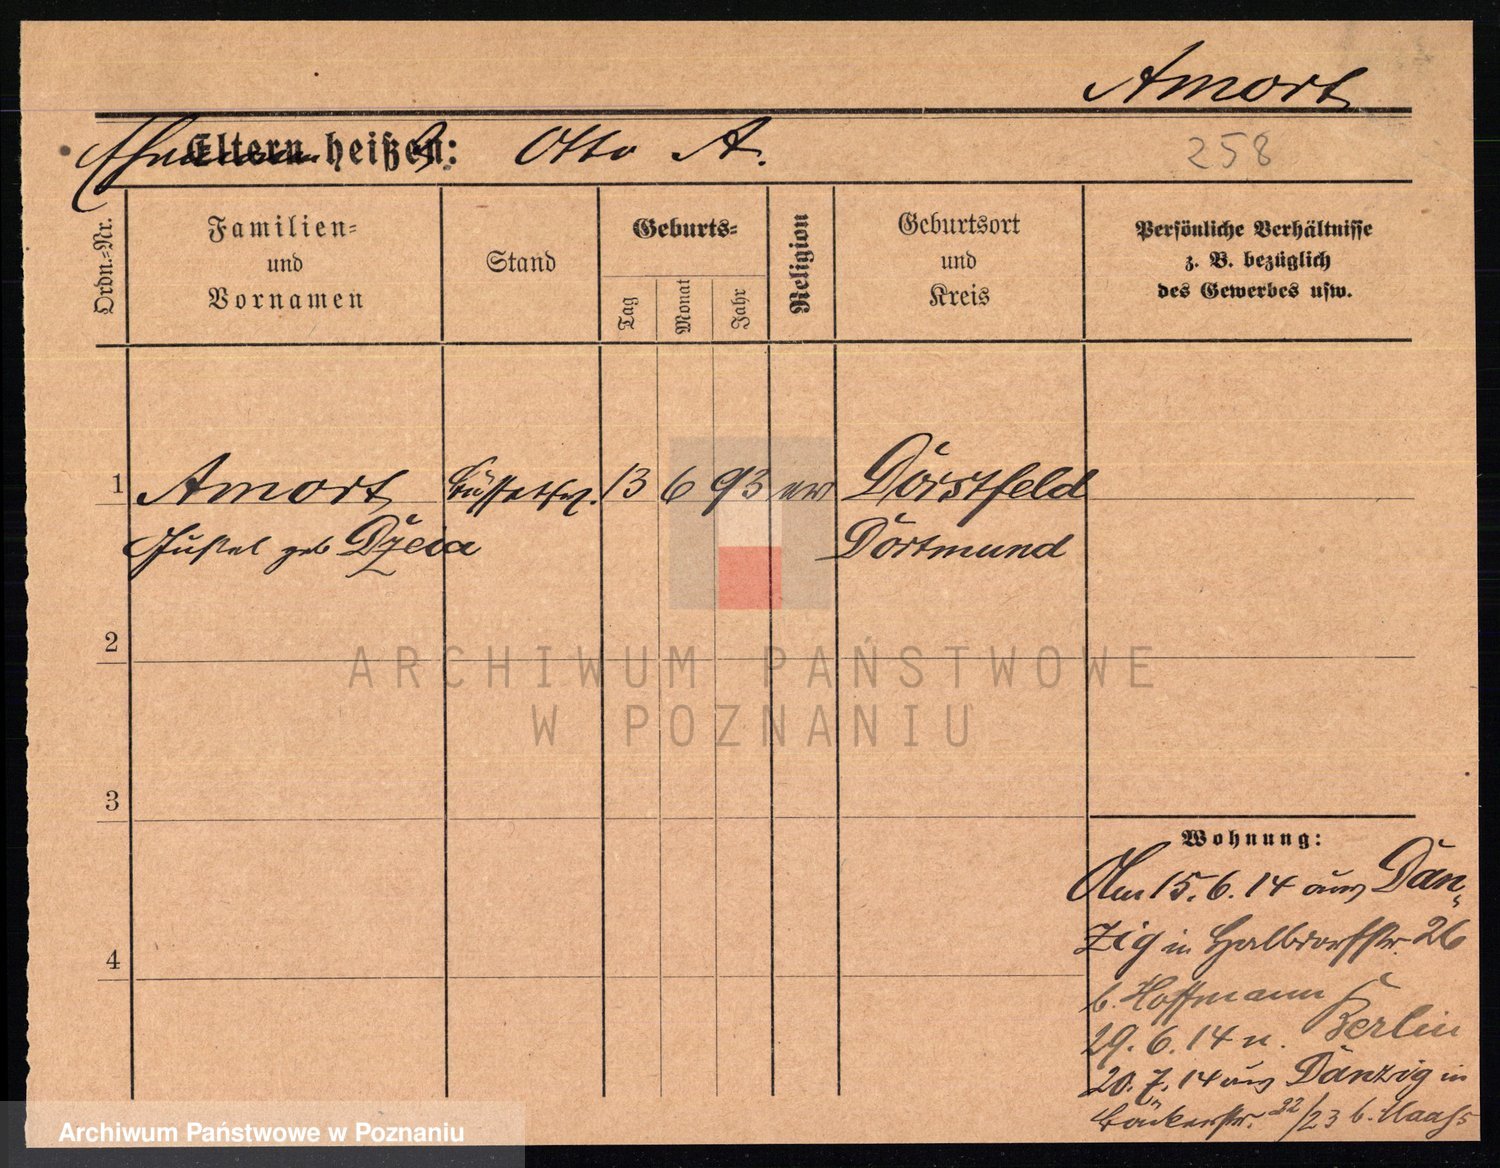 Amort
Eltern heißen: Otto A.
258
Ordn.-Nr.
Familien-
und
Vornamen
Stand
Geburts-
Tag
Monat
Jahr
Religion
Geburtsort
und
Kreis
Persönliche Verhältnisse
z. B. bezüglich
des Gewerbes usw.
1 Amort 13 6 93 ev Dorstfeld
geb Dzeia Dortmund
2
3
4
Wohnung:
Am 15.6.14 aus Dan-
zig in Halbdorfstr. 26
b. Hoffmann
29.6.14 n. Berlin
20.7.14 aus Danzig in
Bäckerstr. 22/23 b. Haass
ARCHIWUM PAŃSTWOWE
W POZNANIU
Archiwum Państwowe w Poznaniu